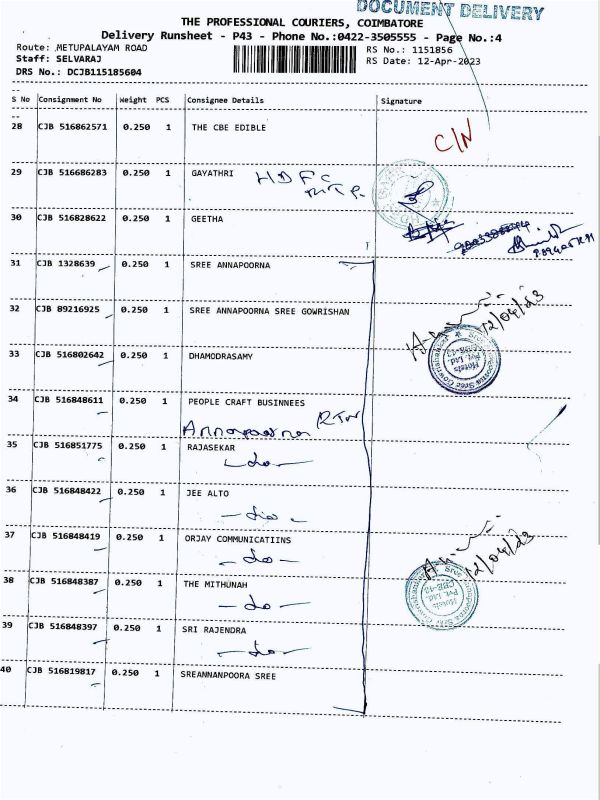 DOCUMENT DELIVERY
THE PROFESSIONAL COURIERS, COIMBATORE
Delivery Runsheet - P43 - Phone No.:0422-3505555 - Page No.:4
Route: .METUPALAYAM ROAD RS No.: 1151856
Staff: SELVARAJ RS Date: 12-Apr-2023
DRS No.: DCJB115185604
S No Consignment No Weight PCS Consignee Details Signature
28 CJB 516862571 0.250 1 THE CBE EDIBLE C/N
29 CJB 516686283 0.250 1 GAYATHRI HDFC
30 CJB 516828622 0.250 1 GEETHA
31 CJB 1328639 0.250 1 SREE ANNAPOORNA
32 CJB 89216925 0.250 1 SREE ANNAPOORNA SREE GOWRISHAN
12/04/23
33 CJB 516802642 0.250 1 DHAMODRASAMY
Hotels
Pvt. Ltd.
34 CJB 516848611 0.250 1 PEOPLE CRAFT BUSINNEES
Annapoorna
35 CJB 516851775 0.250 1 RAJASEKAR
do
36 CJB 516848422 0.250 1 JEE ALTO
do
37 CJB 516848419 0.250 1 ORJAY COMMUNICATIINS
12/04/23
do
38 CJB 516848387 0.250 1 THE MITHUNAH
Hotels
Pvt. Ltd.
do
39 CJB 516848397 0.250 1 SRI RAJENDRA
do
40 CJB 516819817 0.250 1 SREANNANPOORA SREE